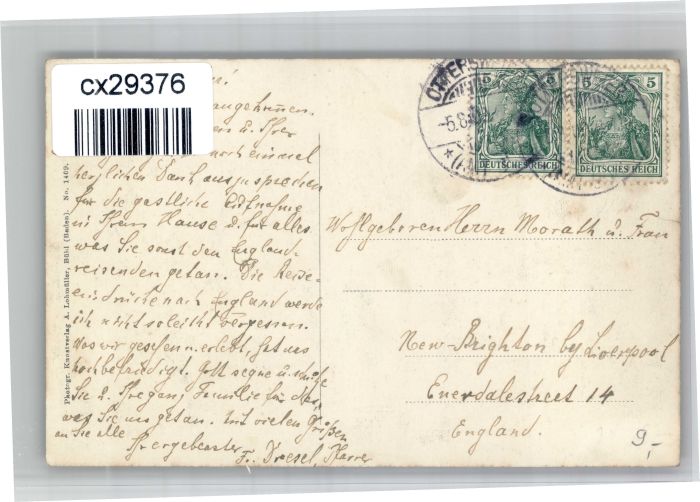 cx29376
angenehmen
u. Ihrer
noch einmal
herzlichen Dank auszusprechen
für die gastliche Aufnahme
in Ihrem Hause u. für alles
was Sie sonst den England-
reisenden getan. Die Reise
eindrücke nach England werde
ich nicht so leicht vergessen.
was wir gesehen u. erlebt, hat uns
hochbefriedigt. Gott segne u. schütze
Sie u. Ihre ganz Familie für das
was Sie uns getan. Mit vielen Grüßen
an Sie alle
Ihr ergebenster
Fr. Dresel, Pfarrer
Photogr. Kunstverlag A. Lohmüller, Bühl (Baden). No. 1469.
OTTERS
-5.8.
5
DEUTSCHES REICH
5 5
DEUTSCHES REICH
Wohlgeboren Herrn Morath u. Frau
New-Brighton by Liverpool
Enerdalestreet 14
England.
9,-